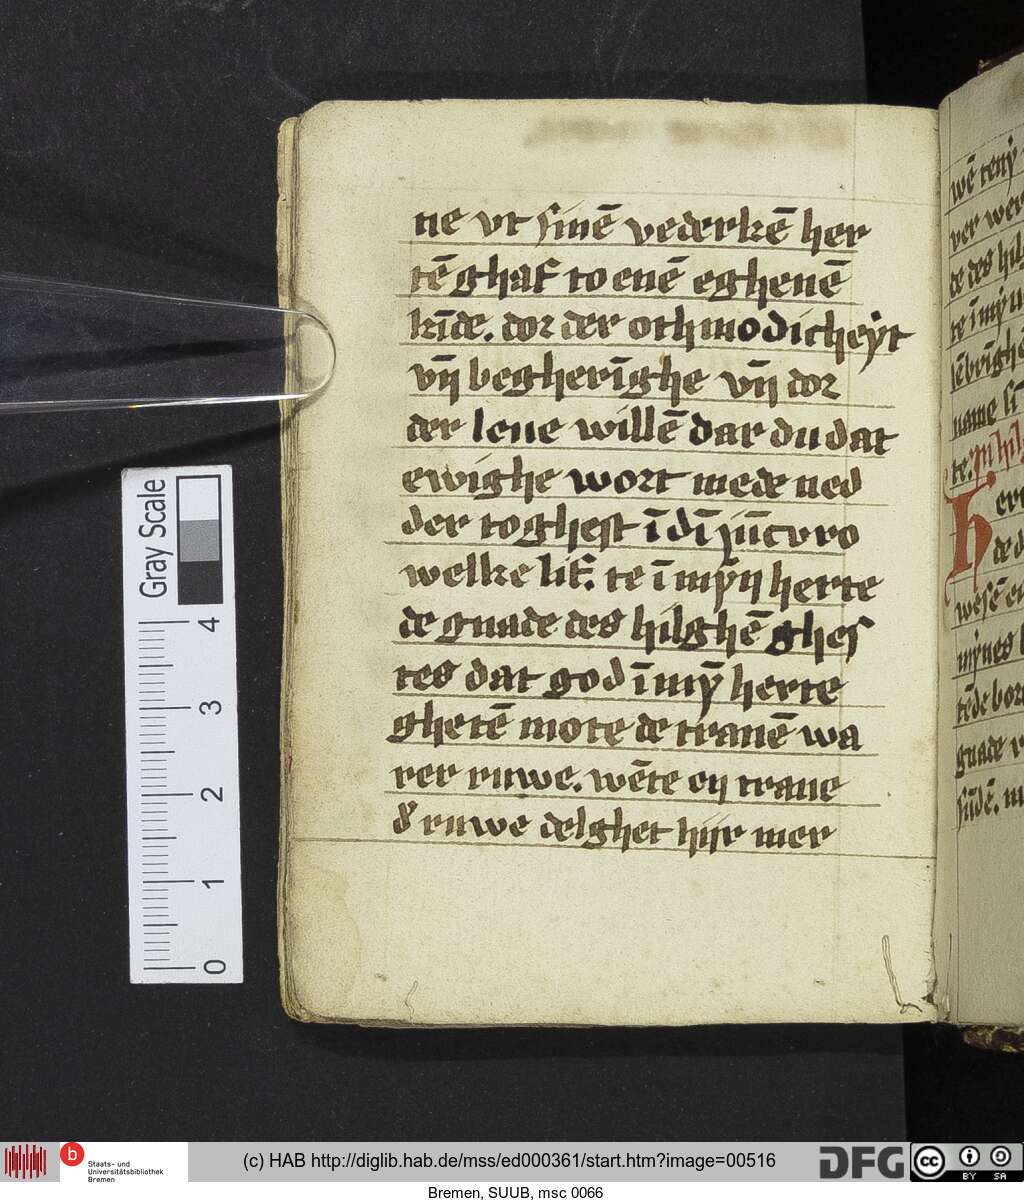 ne vt sinē vederkē her
tē ghaf to enē eghenē
kīde. dor der othmodicheẏt
vn̄ begherīghe vn̄ dor
der leue willē dar du dat
ewighe wort mede ned
der toghest ī dī jūcvro
welke lif. te ī mẏn herte
de gnade des hilghē ghes
tes dat god ī mẏ herte
ghetē mote de tranē wa
rer ruwe. wēte en trane
d' ruwe delghet hijr mer
wē
te ī
name
te.
de d
wesē
mẏnes
gnade
sūdē.
Gray Scale
4
3
2
1
0
b
Staats- und
Universitätsbibliothek
Bremen
(c) HAB http://diglib.hab.de/mss/ed000361/start.htm?image=00516
DFG
cc
BY SA
Bremen, SUUB, msc 0066